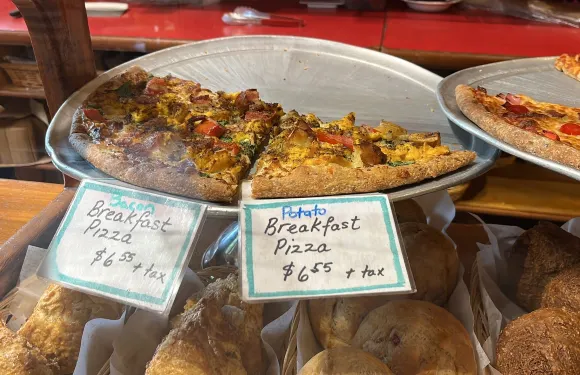 Bacon
Breakfast
Pizza
$6.55 + tax
Potato
Breakfast
Pizza
$6.55 + tax